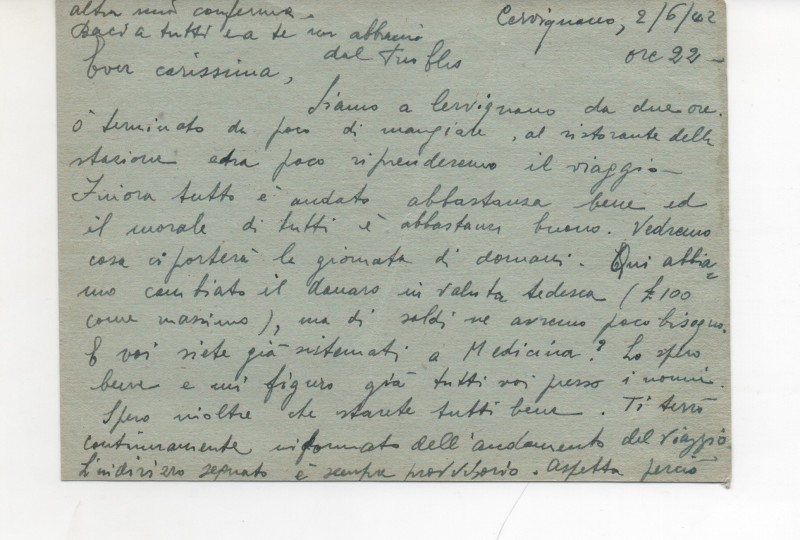 altra mia conferma.
Baci a tutti e a te un abbraccio
dal tuo
Cervignano, 2/6/42
ore 22 -
Ever carissima,
Siamo a Cervignano da due ore.
O terminato da poco di mangiare, al ristorante della
stazione e tra poco riprenderemo il viaggio -
Finora tutto è andato abbastanza bene ed
il morale di tutti è abbastanza buono. Vedremo
cosa ci porterà la giornata di domani. Qui abbia=
mo cambiato il danaro in valuta tedesca (£ 100
come massimo), ma di soldi ne avremo poco bisogno.
E voi siete già sistemati a Medicina? Lo spero
bene e mi figuro già tutti voi presso i nonni.
Spero inoltre che starete tutti bene. Ti terrò
continuamente informato dell'andamento del viaggio.
L'indirizzo segnato è sempre provvisorio. Aspetta perciò